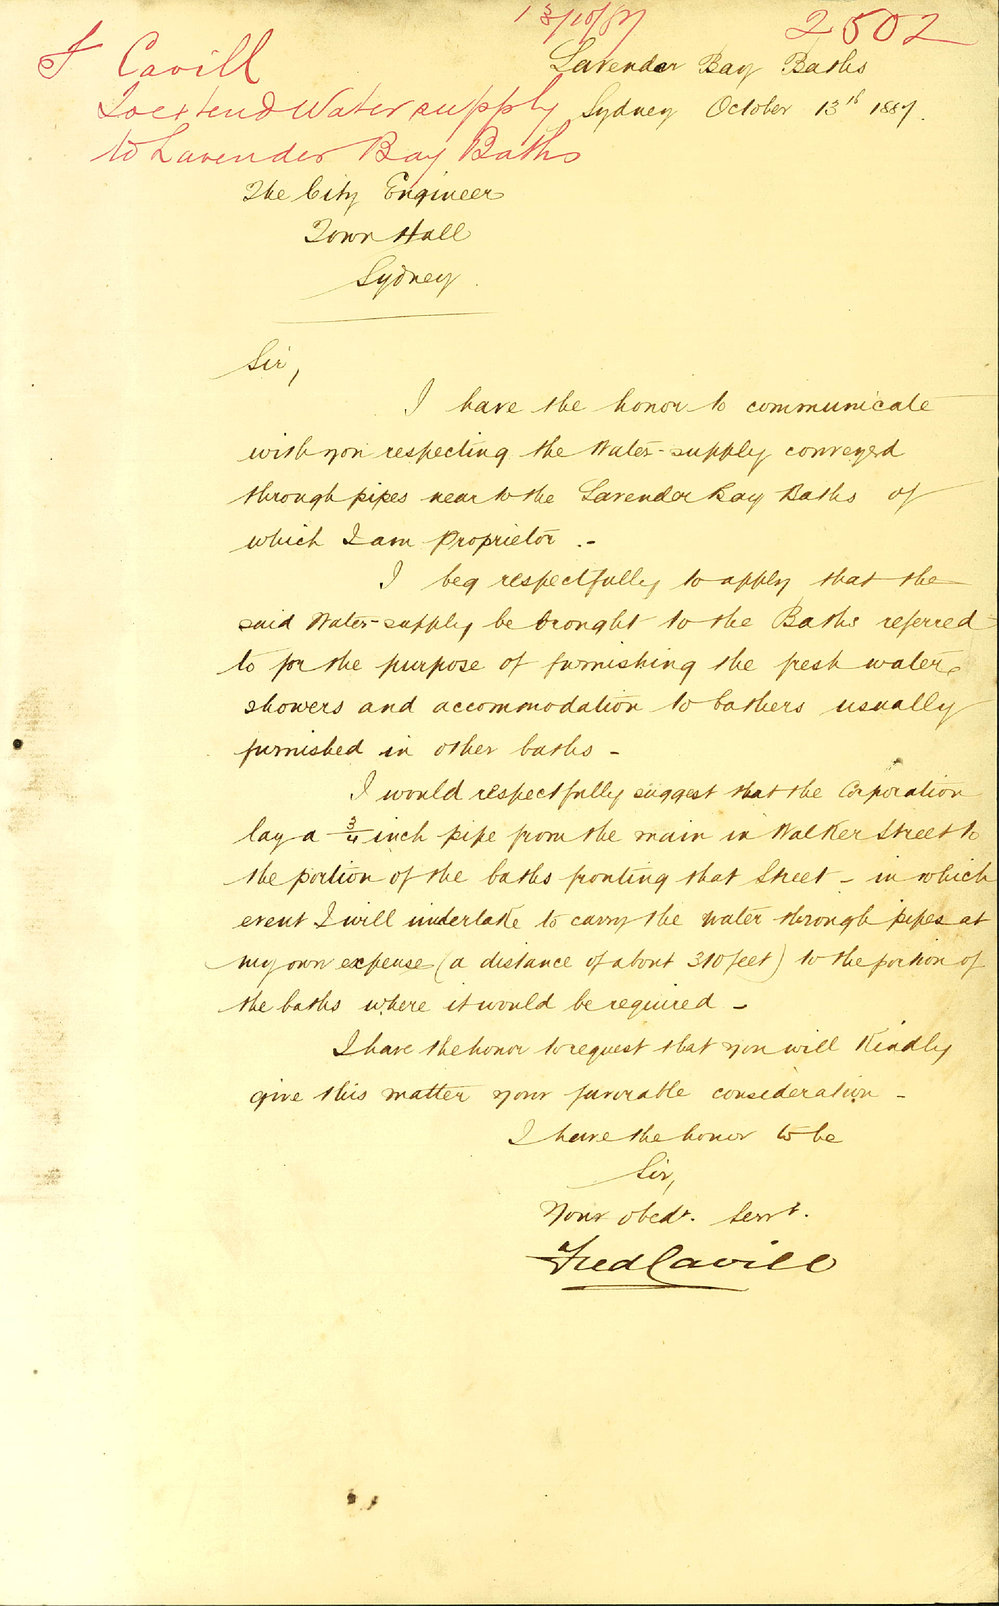 13/10/87
2502
F Cavill
To extend Water supply
to Lavender Bay Baths
Lavender Bay Baths
Sydney October 13th 1887.
The City Engineer
Town Hall
Sydney.
Sir,
I have the honor to communicate
with you respecting the Water-supply conveyed
through pipes near to the Lavender Bay Baths of
which I am Proprietor.-
I beg respectfully to apply that the
said Water-supply be brought to the Baths referred
to for the purpose of furnishing the fresh water
showers and accommodation to bathers usually
furnished in other baths -
I would respectfully suggest that the Corporation
lay a 3/4 inch pipe from the main in Walker Street to
the portion of the baths fronting that Street - in which
event I will undertake to carry the water through pipes at
my own expense (a distance of about 310 feet) to the portion of
the baths where it would be required -
I have the honor to request that you will Kindly
give this matter your favorable consideration -
I have the honor to be
Sir,
Your obedt. Servt.
Fred Cavill